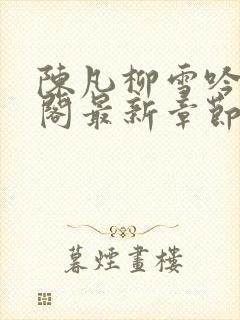 陳凡柳雪吟
閣最新章節
暮煙畫樓